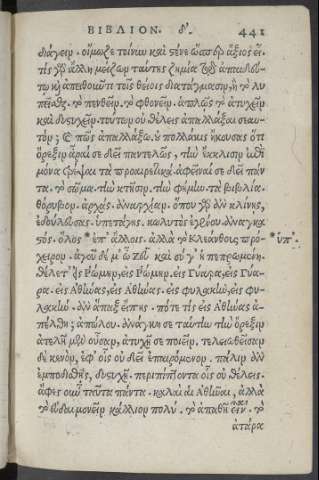 ΒΙΒΛΙΟΝ. δ'. 441
διάγειν. οἴμωζε τοίνυν καὶ στένε ὥσπερ ἄξιος εἶ.
τίς γὰρ ἄλλη μείζων ταύτης ζημία τοῦ ἀπαιδεύ-
του καὶ ἀπειθοῦντι τοῖς θείοις διατάγμασιν, ἢ τὸ λυ
πεῖσθαι. τὸ πενθεῖν. τὸ φθονεῖν. ἁπλῶς τὸ ἀτυχεῖν
καὶ δυστυχεῖν. τούτων οὐ θέλεις ἀπαλλάξαι σεαυ-
τόν; Καὶ πῶς ἀπαλλάξω. οὐ πολλάκις ἤκουσας ὅτι
ὄρεξιν ἆραί σε δεῖ παντελῶς. τὴν ἔκκλισιν ἐπὶ
μόνα τρέψαι τὰ προαιρετικά. ἀφεῖναί σε δεῖ πάν
τα. τὸ σῶμα. τὴν κτῆσιν. τὴν φήμην. τὰ βιβλία.
θόρυβον. ἀρχὰς. ἀναρχίαν. ὅπου γὰρ ἂν κλίνῃς,
ἐδούλευσας. ὑπετάγης. κωλυτὸς ἐγένου. ἀναγκα
στός. ὅλος * ἐπ' ἄλλοις. ἀλλὰ τὸ Κλεάνθους πρό-
* ὑπ'.
χειρον. ἄγου δή μ' ὦ ζεῦ καὶ σύ γ' ἡ πεπρωμένη.
θέλετ' εἰς Ῥώμην, εἰς Ῥώμην. εἰς Γύαρα, εἰς Γύα-
ρα. εἰς Ἀθήνας, εἰς Ἀθήνας. εἰς φυλακὴν, εἰς φυ-
λακήν. ἂν ἅπαξ εἴπῃς. πότε τίς εἰς Ἀθήνας ἀ-
πέλθῃ; ἀπώλου. ἀνάγκη σε ταύτην τὴν ὄρεξιν
ἀτελῆ μὲν οὖσαν, ἀτυχῆ σε ποιεῖν. τελειωθεῖσαν
δὲ κενὸν, ἐφ' οἷς οὐ δεῖ ἐπαιρόμενον. πάλιν ἂν
ἐμποδισθῇς, δυστυχῆ. περιπίπτοντα οἷς οὐ θέλεις.
ἄφες οὖν ταῦτα πάντα. καλαὶ αἱ Ἀθῆναι, ἀλλὰ
τὸ εὐδαιμονεῖν κάλλιον πολύ. τὸ ἀπαθῆ εἶναι. τὸ
ἀτάρα